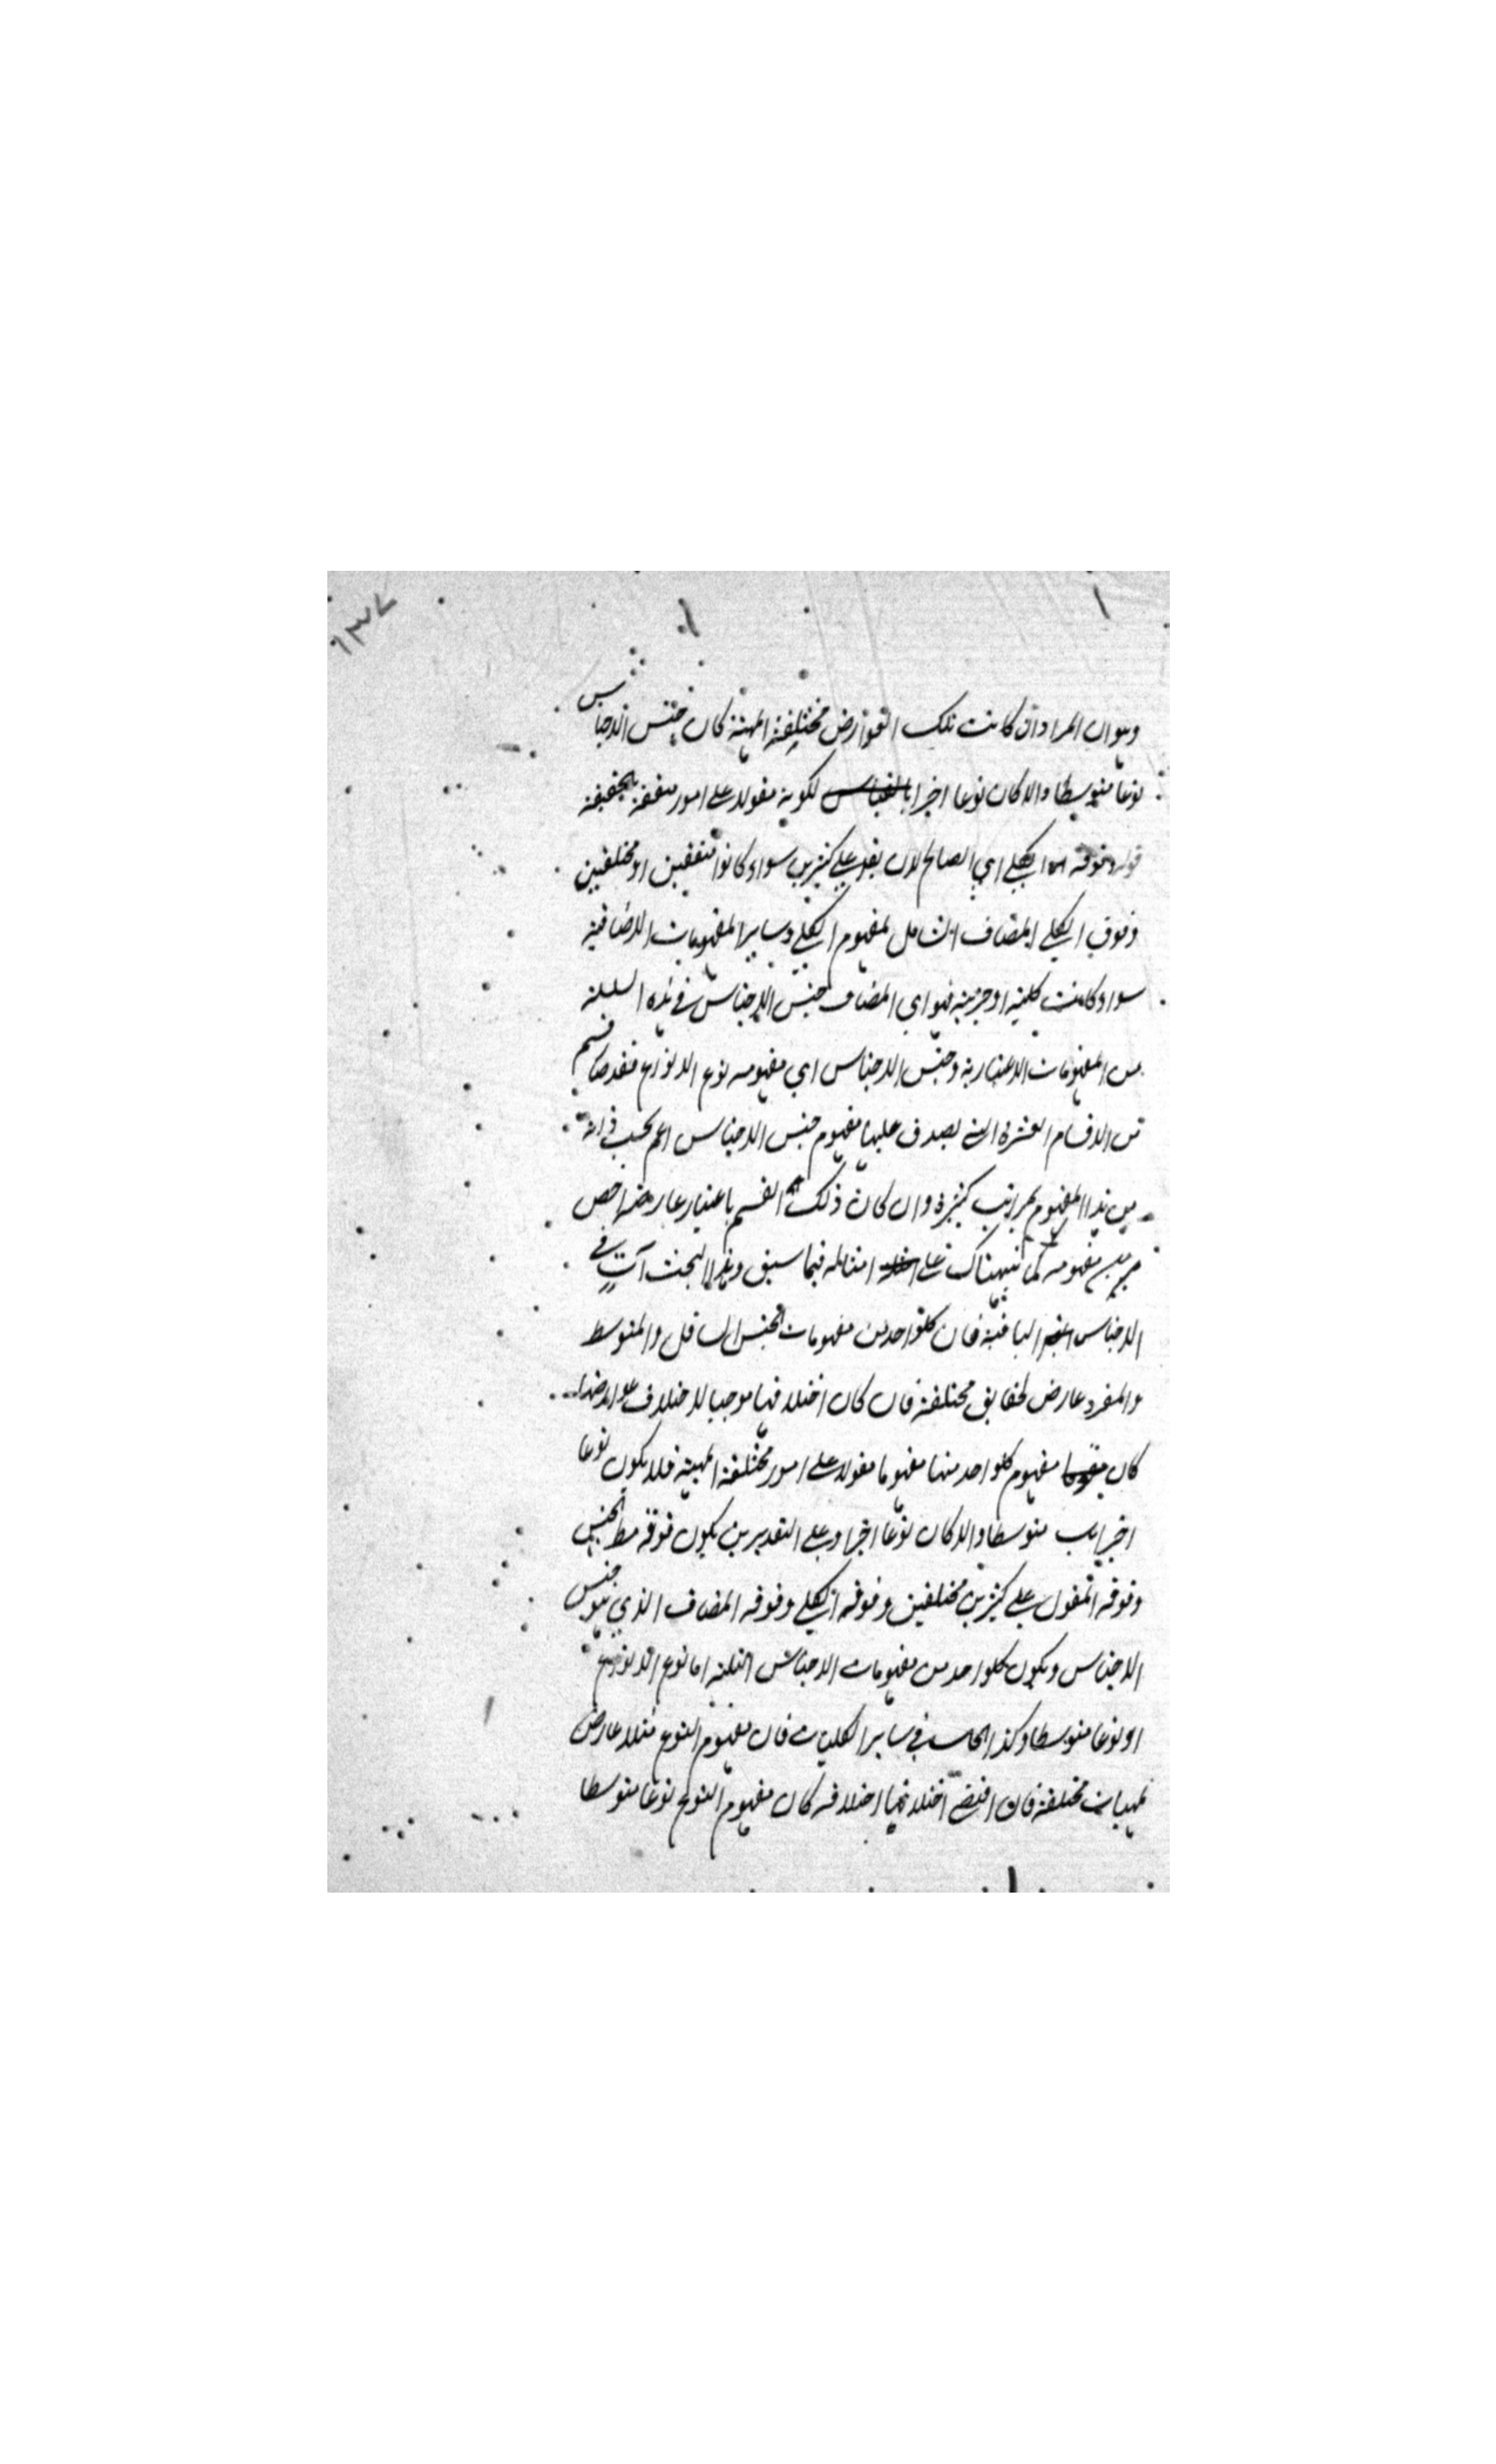 ١٣٧
وهو ان المراد ان كانت تلك العوارض مختلفة المهية كان جنس الاجناس
نوعا متوسطا والا كان نوعا اخيرا بالقياس لكونه مقولا على امور متفقة الحقيقة
قوله وفوقه الكلي اي الصالح لان يقع على كثيرين سواء كانوا متفقين او مختلفين
وفوق الكلي المضاف الشامل لمفهوم الكلي وساير المفهومات الاضافية
سواء كانت كلية او جزئية فهو اي المضاف جنس الاجناس في هذه السلسلة
من المفهومات الاعتبارية وجنس الاجناس اي مفهومه نوع الانواع فقد صار قسم
من الاقسام العشرة التي يصدق عليها مفهوم جنس الاجناس اعم بحسب ذاته
من هذا المفهوم بمراتب كثيرة وان كان ذلك القسم باعتبار عارضه اخص
من مفهومه كما نبهناك على امثاله فيما سبق وهذا البحث آت في
الاجناس الباقية فان كلواحد من مفهومات الجنس السافل والمتوسط
والمفرد عارض لحقايق مختلفة فان كان اختلافها موجبا لاختلاف عوارضها
كان مفهوم كلواحد منها مفهوما مقولا على امور مختلفة المهية فلا يكون نوعا
اخيرا بل متوسطا والا كان نوعا اخيرا وعلى التقديرين يكون فوقه مط الجنس
وفوقه المقول على كثيرين مختلفين وفوقه الكلي وفوقه المضاف الذي هو جنس
الاجناس ويكون كلواحد من مفهومات الاجناس الثلثة اما نوع الانواع
او نوعا متوسطا وكذا الحال في ساير الكليات فان مفهوم النوع مثلا عارض
لمهيات مختلفة فان اقتضى اختلافها اختلافه كان مفهوم النوع نوعا متوسطا